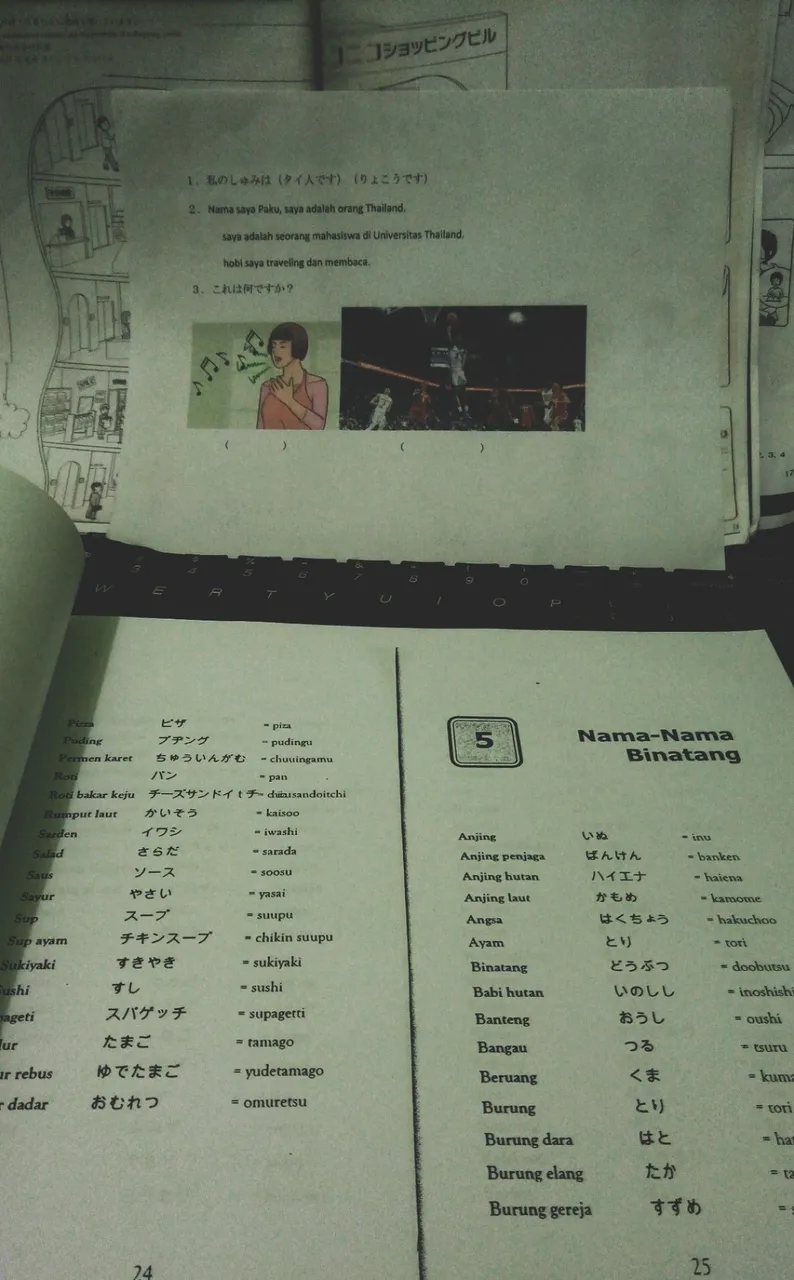 ショッピングビル
1. 私のしゅみは（タイ人です）（りょこうです）
2. Nama saya Paku, saya adalah orang Thailand.
saya adalah seorang mahasiswa di Universitas Thailand.
hobi saya traveling dan membaca.
3. これは何ですか？
( ) ( )
2, 3, 4
17
3 4 5 6 7 8 9 0
W E R T Y U I O P
Pizza ピザ = piza
Puding プヂング = pudingu
Permen karet ちゅういんがむ = chuuingamu
Roti パン = pan
Roti bakar keju
Rumput laut かいそう = kaisoo
Sarden イワシ = iwashi
Salad さらだ = sarada
Saus ソース = soosu
Sayur やさい = yasai
Sup スープ = suupu
Sup ayam チキンスープ = chikin suupu
Sukiyaki すきやき = sukiyaki
ushi すし = sushi
ageti スパゲッチ = supagetti
lur たまご = tamago
ur rebus ゆでたまご = yudetamago
r dadar おむれつ = omuretsu
24
5
Nama-Nama
Binatang
Anjing いぬ = inu
Anjing penjaga ばんけん = banken
Anjing hutan ハイエナ = haiena
Anjing laut かもめ = kamome
Angsa はくちょう = hakuchoo
Ayam とり = tori
Binatang どうぶつ = doobutsu
Babi hutan いのしし = inoshishi
Banteng おうし = oushi
Bangau つる = tsuru
Beruang くま = kuma
Burung とり = tori
Burung dara はと = ha
Burung elang たか = ta
Burung gereja すずめ =
25